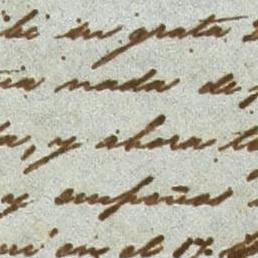 su grata
nada de
, y ahora
y empeños
en el 17